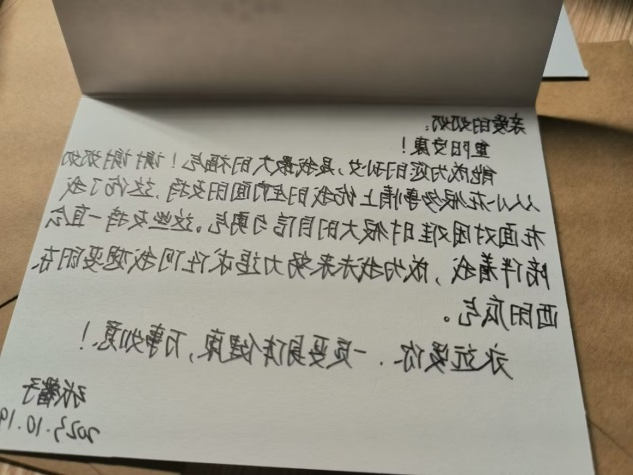 亲爱的奶奶：
重阳安康！
能成为您的孙女，是我最大的福气！谢谢奶奶
从小在很多事情上给我的全方面的支持，这给了我
在面对困难时很大的自信与勇气。这些支持一直会
陪伴着我，成为我未来努力追求任何我想要的东
西的底气。
永远爱你、一定要身体健康，万事如意！
张馨予
2023.10.19